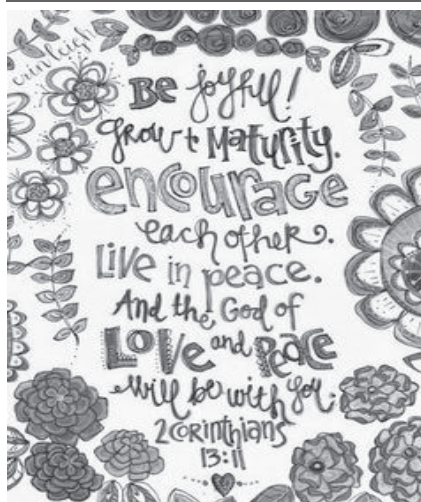 erinleigh
Be joyful!
grow to Maturity.
encourage
each other.
Live in peace.
And the God of
Love and Peace
will be with you.
2 Corinthians
13:11